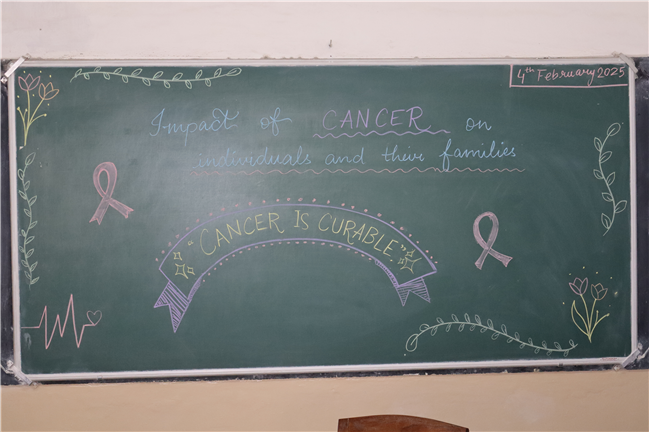 4th February 2025
Impact of CANCER on
individuals and their families
"CANCER IS CURABLE"